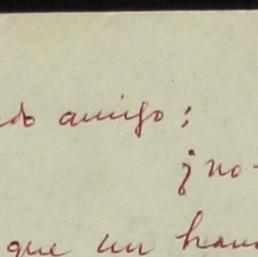 do amigo:
¡no-
que un han